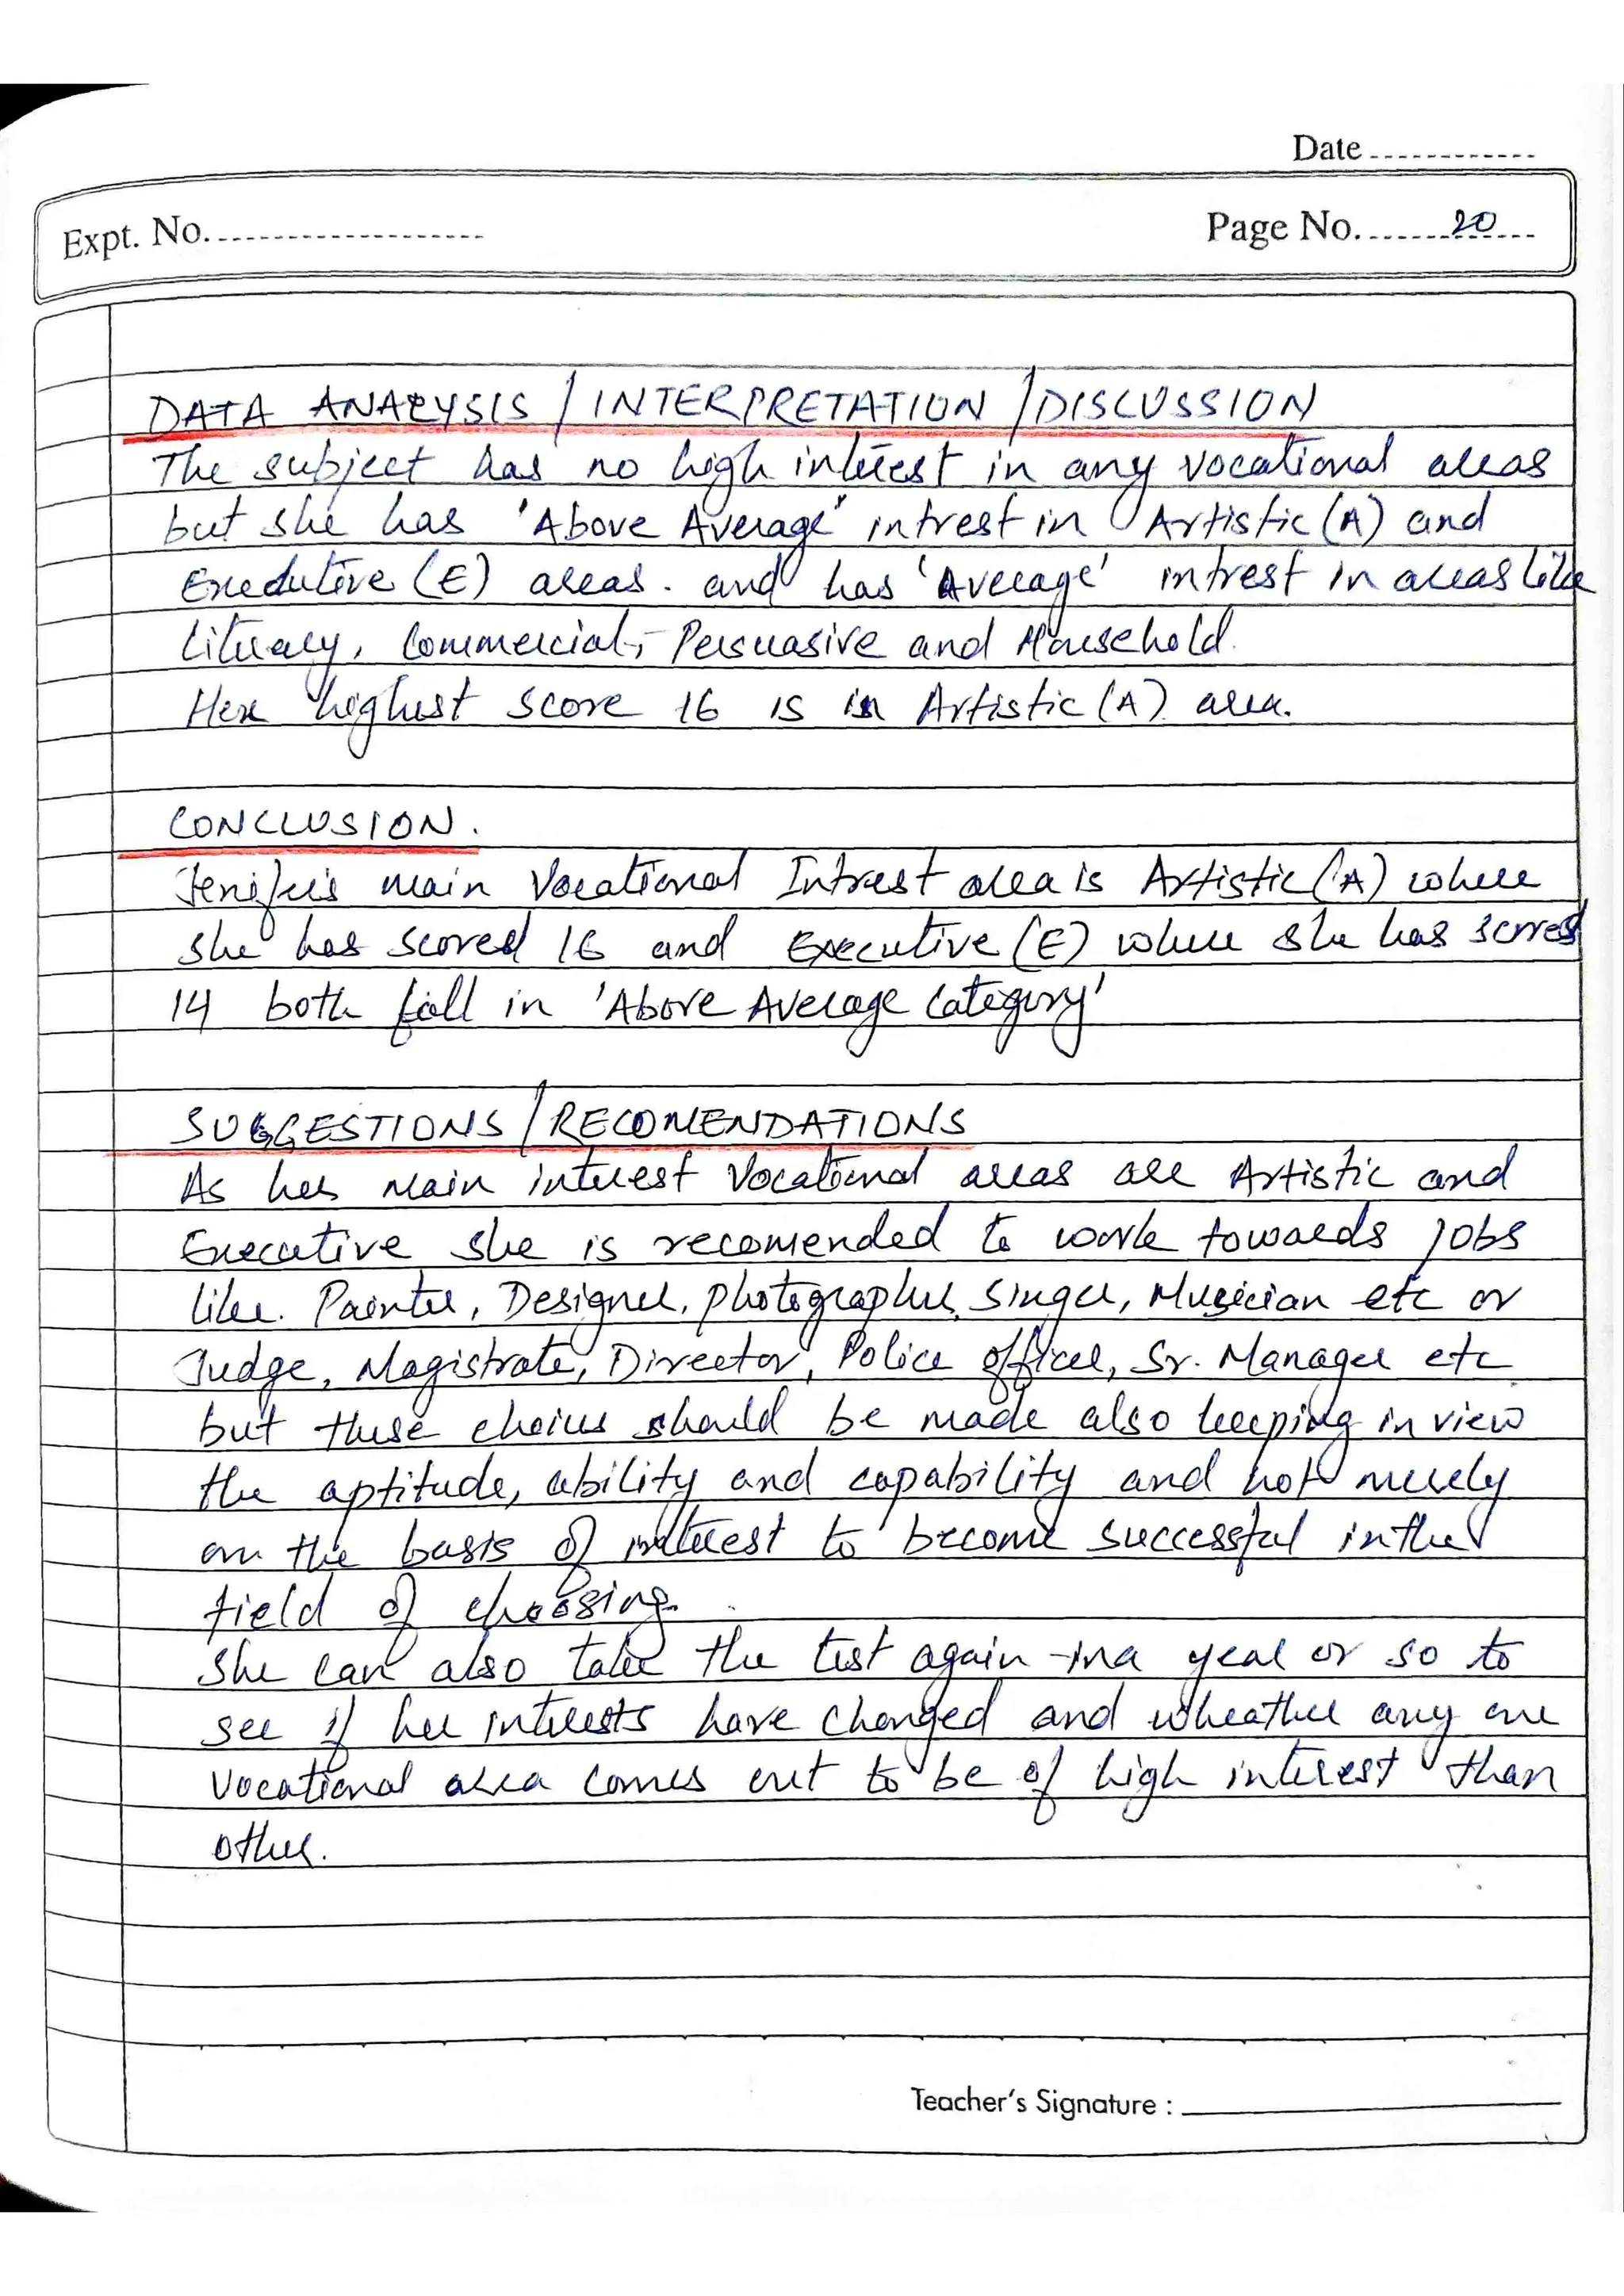 Date
Expt. No.
Page No. 20
DATA ANALYSIS / INTERPRETATION / DISCUSSION
The subject has no high interest in any vocational areas
but she has 'Above Average' intrest in Artistic (A) and
Exedutive (E) areas. and has 'Average' intrest in areas like
Literary, Commercial, Persuasive and Household.
Here highest score 16 is in Artistic (A) area.
CONCLUSION.
Jenifer's main Vocational Intrest area is Artistic (A) where
she has scored 16 and Executive (E) where she has scored
14 both fall in 'Above Average Category'
SUGGESTIONS / RECOMENDATIONS
As her main interest Vocational areas are Artistic and
Executive she is recomended to work towards jobs
like. Painter, Designer, photographer, Singer, Musician etc or
Judge, Magistrate, Director, Police officer, Sr. Manager etc
but these choices should be made also keeping in view
the aptitude, ability and capability and not merely
on the basis of interest to become successful in the
field of choosing.
She can also take the test again in a year or so to
see if her interests have changed and wheather any one
vocational area comes out to be of high interest than
other.
Teacher's Signature :